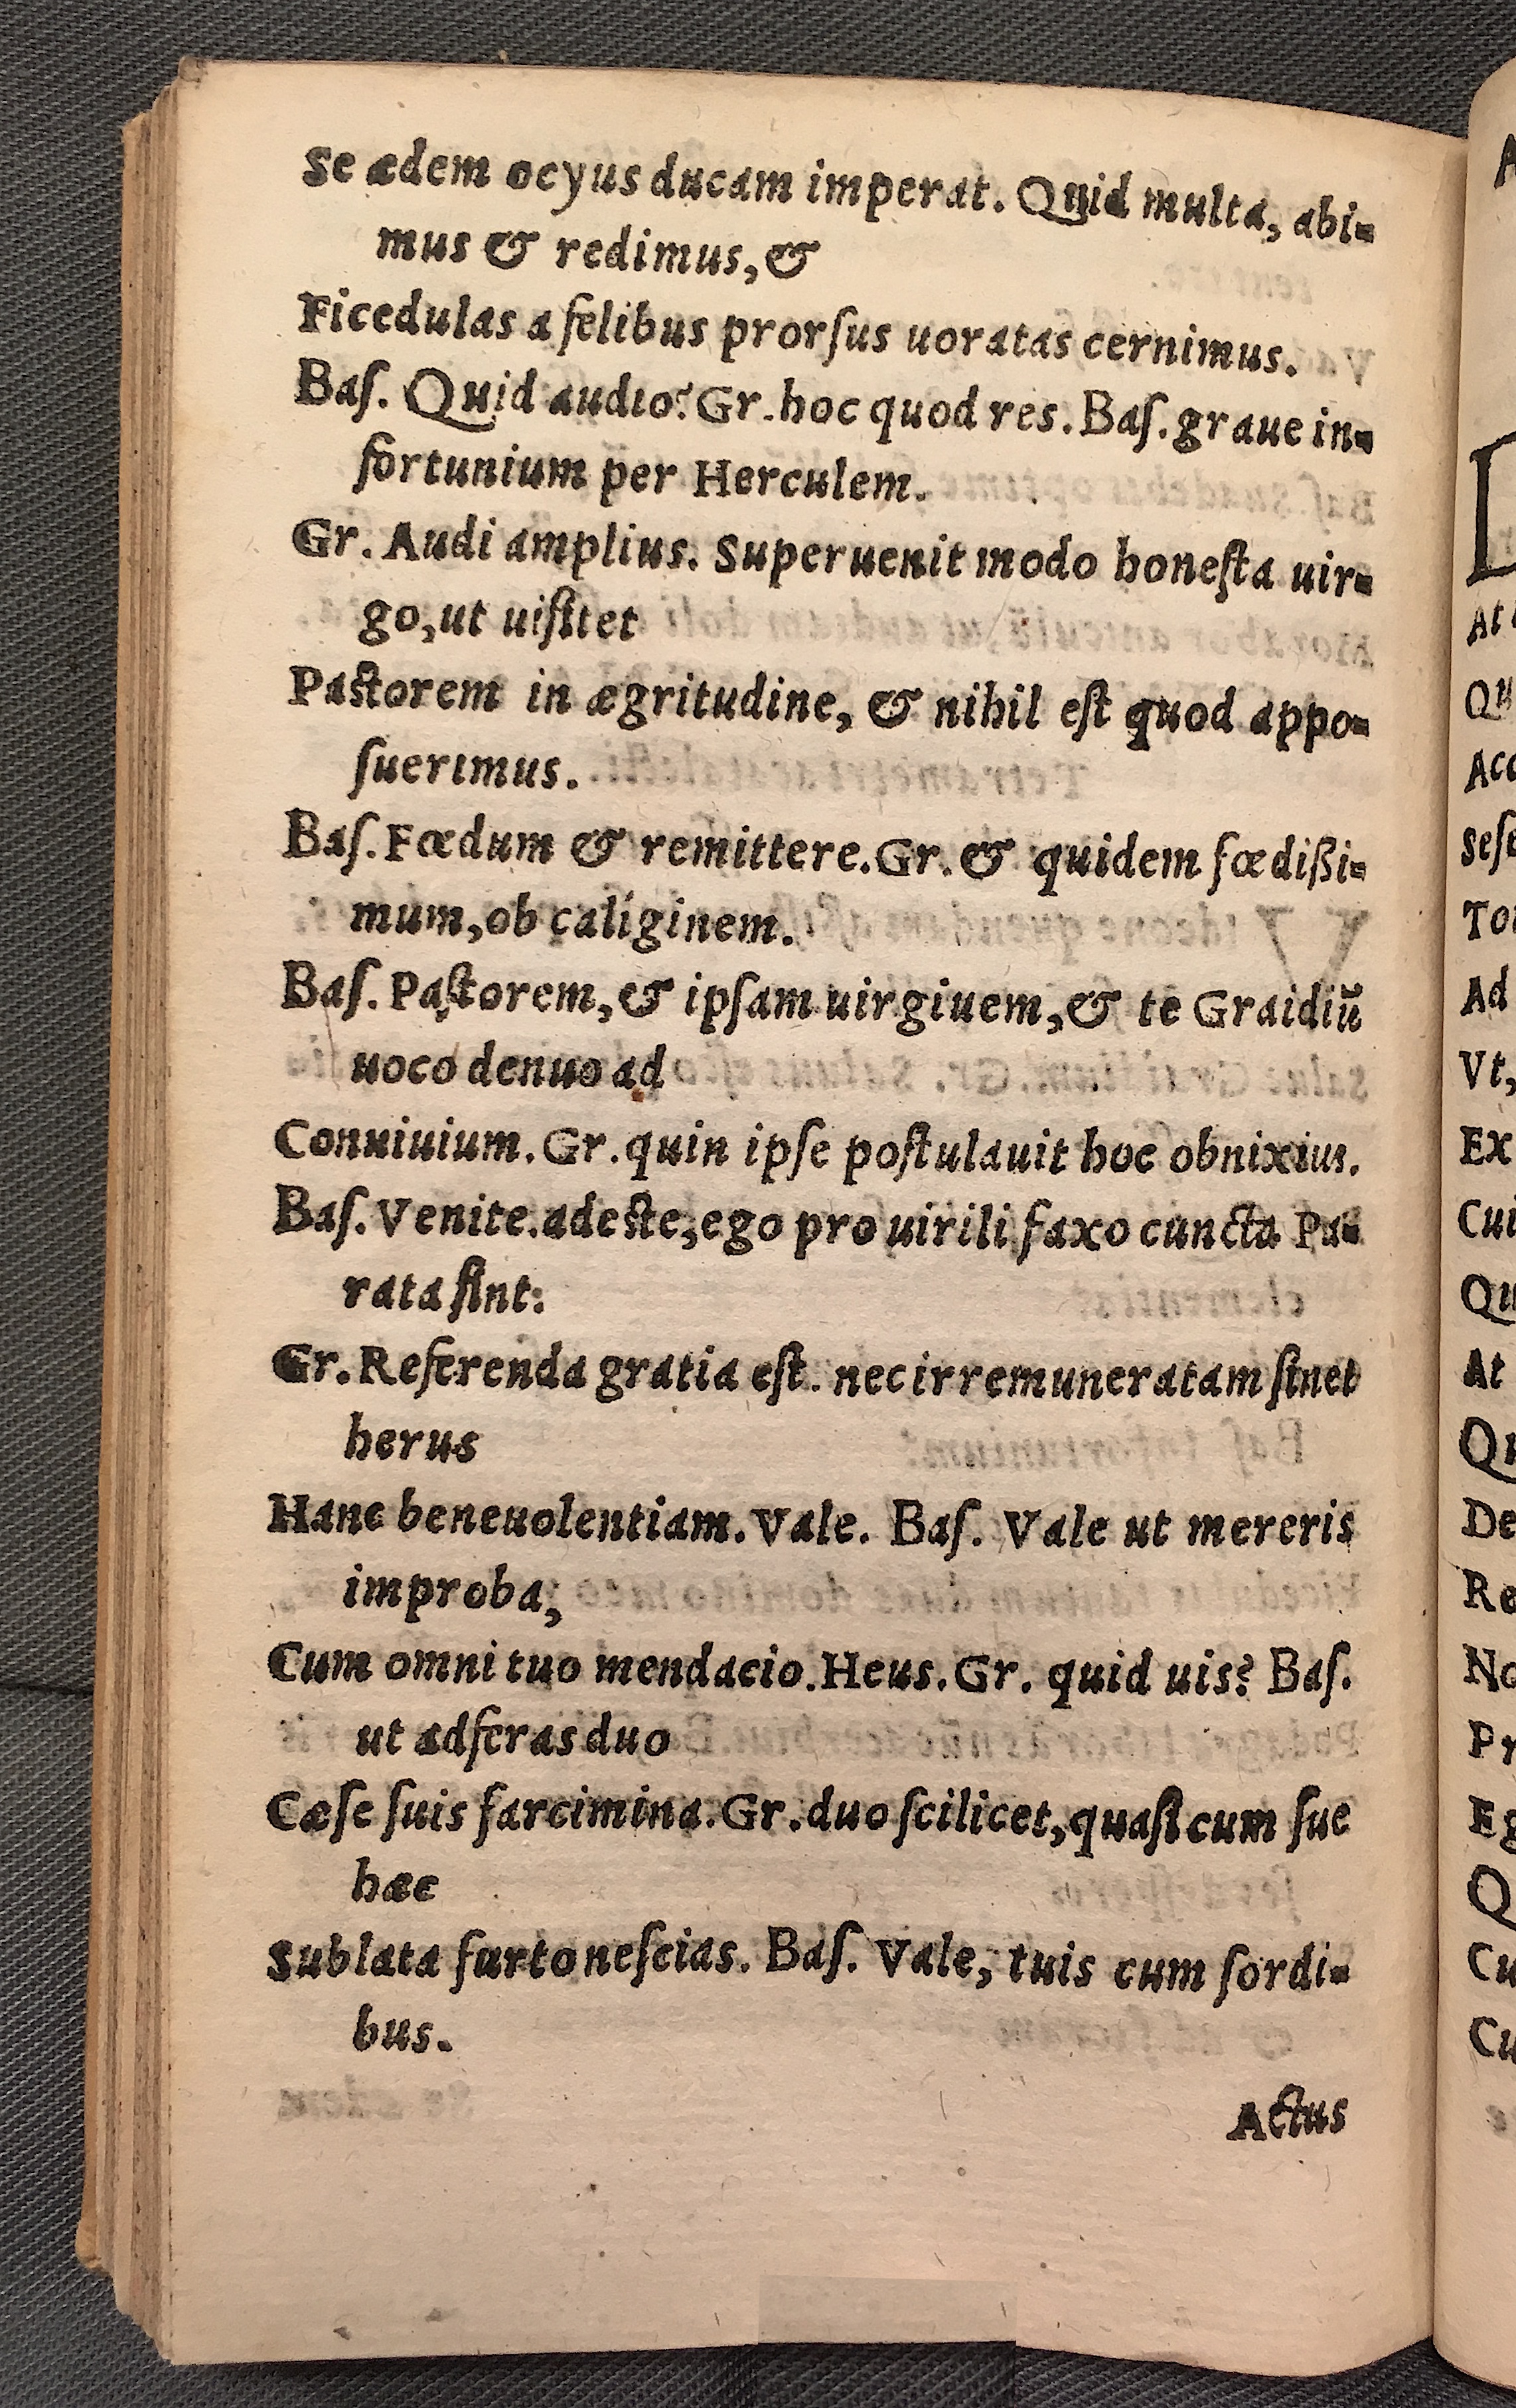 Se ædem ocyus ducam imperat. Quid multa, abi-
mus & redimus, &
Ficedulas a felibus prorſus uoratas cernimus.
Baſ. Quid audio? Gr. hoc quod res. Baſ. graue in-
fortunium per Herculem.
Gr. Audi amplius. Superuenit modo honeſta uir-
go, ut uiſitet
Paſtorem in ægritudine, & nihil eſt quod appo-
ſuerimus.
Baſ. Fœdum & remittere. Gr. & quidem fœdißi-
mum, ob caliginem.
Baſ. Paſtorem, & ipſam uirgiuem, & te Graidiũ
uoco denuo ad
Conuiuium. Gr. quin ipſe poſtulauit hoc obnixius.
Baſ. Venite. adeſte, ego pro uirili faxo cuncta Pa-
rata ſint:
Gr. Referenda gratia eſt. nec irremuneratam ſinet
herus
Hanc beneuolentiam. Vale. Baſ. Vale ut mereris
improba,
Cum omni tuo mendacio. Heus. Gr. quid uis? Baſ.
ut adferas duo
Cæſe ſuis farcimina. Gr. duo ſcilicet, quaſi cum ſue
hæc
Sublata furto neſcias. Baſ. Vale, tuis cum ſordi-
bus.
Actus
At
Qu
Acc
Seſe
Ad
Vt,
Ex
Cui
Qu
At
De
Re
No
Pr
Eg
Q
Cu
Cu